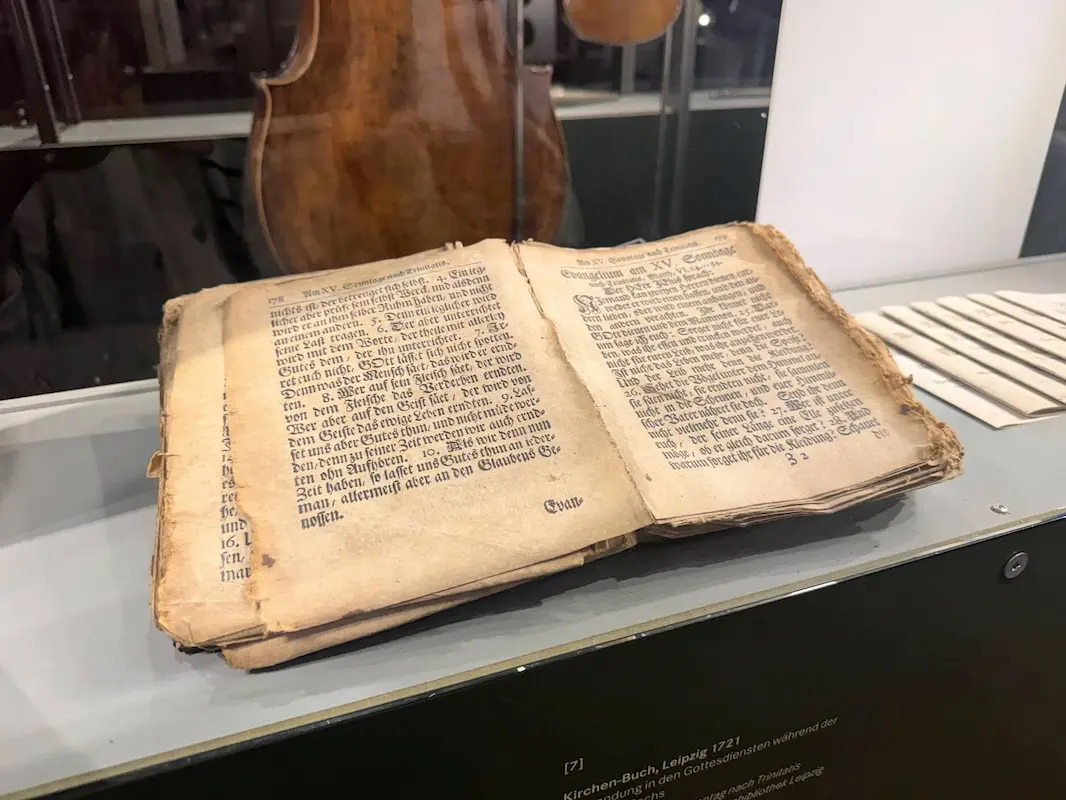 178 Am XV. Sonntage nach Trinitatis.
nichts ist, der betreuget sich selbst. 4. Ein ieg-
licher aber prüfe sein selbst Werck, und alsdenn
wird er an ihm selber Ruhm haben, und nicht
an einem andern. 5. Denn ein ieglicher wird
seine Last tragen. 6. Der aber unterrichtet
wird mit dem Worte, der theile mit allerley
Gutes dem, der ihn unterrichtet. 7. Ir-
ret euch nicht, GOtt lässet sich nicht spotten.
Denn was der Mensch säet, das wird er ernd-
ten. 8. Wer auf sein Fleisch säet, der wird
von dem Fleische das Verderben erndten.
Wer aber auf den Geist säet, der wird von
dem Geiste das ewige Leben erndten. 9. Las-
set uns aber Gutes thun, und nicht müde wer-
den, denn zu seiner Zeit werden wir auch ernd-
ten ohn Aufhören. 10. Als wir denn nun
Zeit haben, so lasset uns Gutes thun an ieder-
man, allermeist aber an den Glaubens Ge-
nossen.
Evan-
und
16.
sen,
mar
Am XV. Sonntage nach Trinitatis. 179
Evangelium am XV. Sonntage
nach Trinitatis, Matth. VI. 24-34.
Der HErr JEsus sprach:
Niemand kan zweyen Herren dienen, ent-
andern verachten. Ihr könnet nicht
GOtt dienen und dem Mammon. 25. Darum
sage ich euch: Sorget nicht für euer Leben,
was ihr essen und trincken werdet, auch
nicht für euren Leib, was ihr anziehen werdet.
Ist nicht das Leben mehr, denn die Speise?
Und der Leib mehr, denn die Kleidung?
26. Sehet die Vögel unter dem Himmel an,
sie säen nicht, sie erndten nicht, sie sammlen
nicht in die Scheunen, und euer Himmli-
scher Vater nähret sie doch. Seyd ihr denn
nicht vielmehr denn sie? 27. Wer ist unter
euch, der seiner Länge eine Elle zusetzen
möge, ob er gleich darum sorget? 28. Und
warum sorget ihr für die Kleidung? Schauet
Z 2 die
[7]
Kirchen-Buch, Leipzig 1721
endung in den Gottesdiensten während der
achs
nntag nach Trinitatis
bibliothek Leipzig